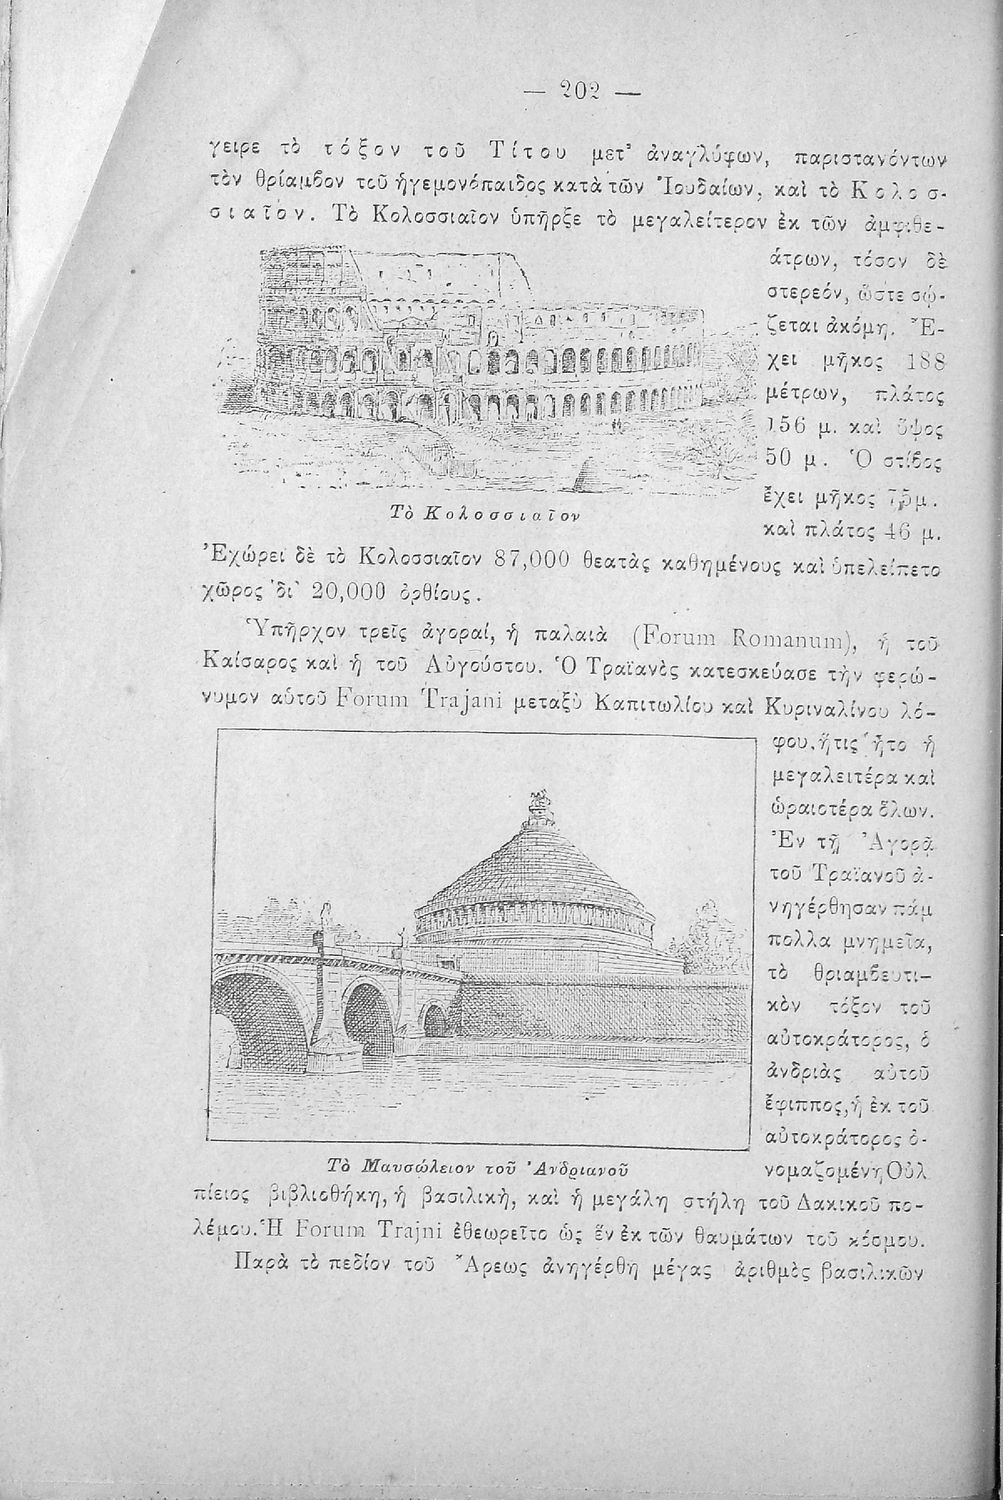 — 202 —
γειρε τὸ τόξον τοῦ Τίτου μετ' ἀναγλύφων, παριστανόντων
τὸν θρίαμβον τοῦ ἡγεμονόπαιδος κατὰ τῶν Ἰουδαίων, καὶ τὸ Κολοσ-
σιαῖον. Τὸ Κολοσσιαῖον ὑπῆρξε τὸ μεγαλείτερον ἐκ τῶν ἀμφιθε-
άτρων, τόσον δὲ
στερεόν, ὥστε σώ-
ζεται ἀκόμη. Ἔ-
χει μῆκος 188
μέτρων, πλάτος
156 μ. καὶ ὕψος
50 μ. Ὁ στίβος
ἔχει μῆκος 75μ.
καὶ πλάτος 46 μ.
Τὸ Κολοσσιαῖον
Ἐχώρει δὲ τὸ Κολοσσιαῖον 87,000 θεατὰς καθημένους καὶ ὑπελείπετο
χῶρος δι' 20,000 ὀρθίους.
Ὑπῆρχον τρεῖς ἀγοραί, ἡ παλαιὰ (Forum Romanum), ἡ τοῦ
Καίσαρος καὶ ἡ τοῦ Αὐγούστου. Ὁ Τραϊανὸς κατεσκεύασε τὴν φερώ-
νυμον αὐτοῦ Forum Trajani μεταξὺ Καπιτωλίου καὶ Κυριναλίνου λό-
φου, ἥτις ἦτο ἡ
μεγαλειτέρα καὶ
ὡραιοτέρα ὅλων.
Ἐν τῇ Ἀγορᾷ
τοῦ Τραϊανοῦ ἀ-
νηγέρθησαν πάμ
πολλα μνημεῖα,
τὸ θριαμβευτι-
κὸν τόξον τοῦ
αὐτοκράτορος, ὁ
ἀνδριὰς αὐτοῦ
ἔφιππος, ἡ ἐκ τοῦ
αὐτοκράτορος ὀ-
νομαζομένη Οὐλ
Τὸ Μαυσώλειον τοῦ Ἀνδριανοῦ
πίειος βιβλιοθήκη, ἡ βασιλική, καὶ ἡ μεγάλη στήλη τοῦ Δακικοῦ πο-
λέμου. Ἡ Forum Trajni ἐθεωρεῖτο ὡς ἓν ἐκ τῶν θαυμάτων τοῦ κόσμου.
Παρὰ τὸ πεδίον τοῦ Ἄρεως ἀνηγέρθη μέγας ἀριθμὸς βασιλικῶν